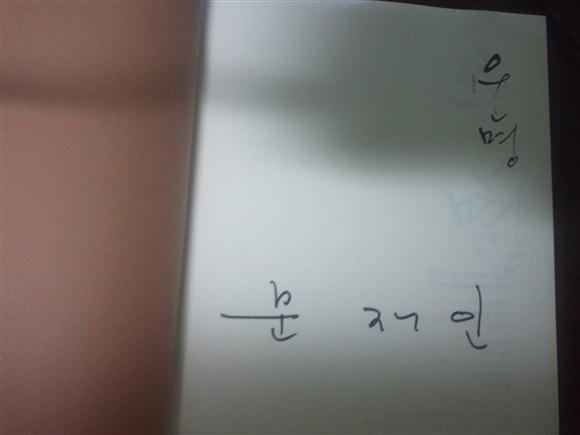 운명
문 재 인